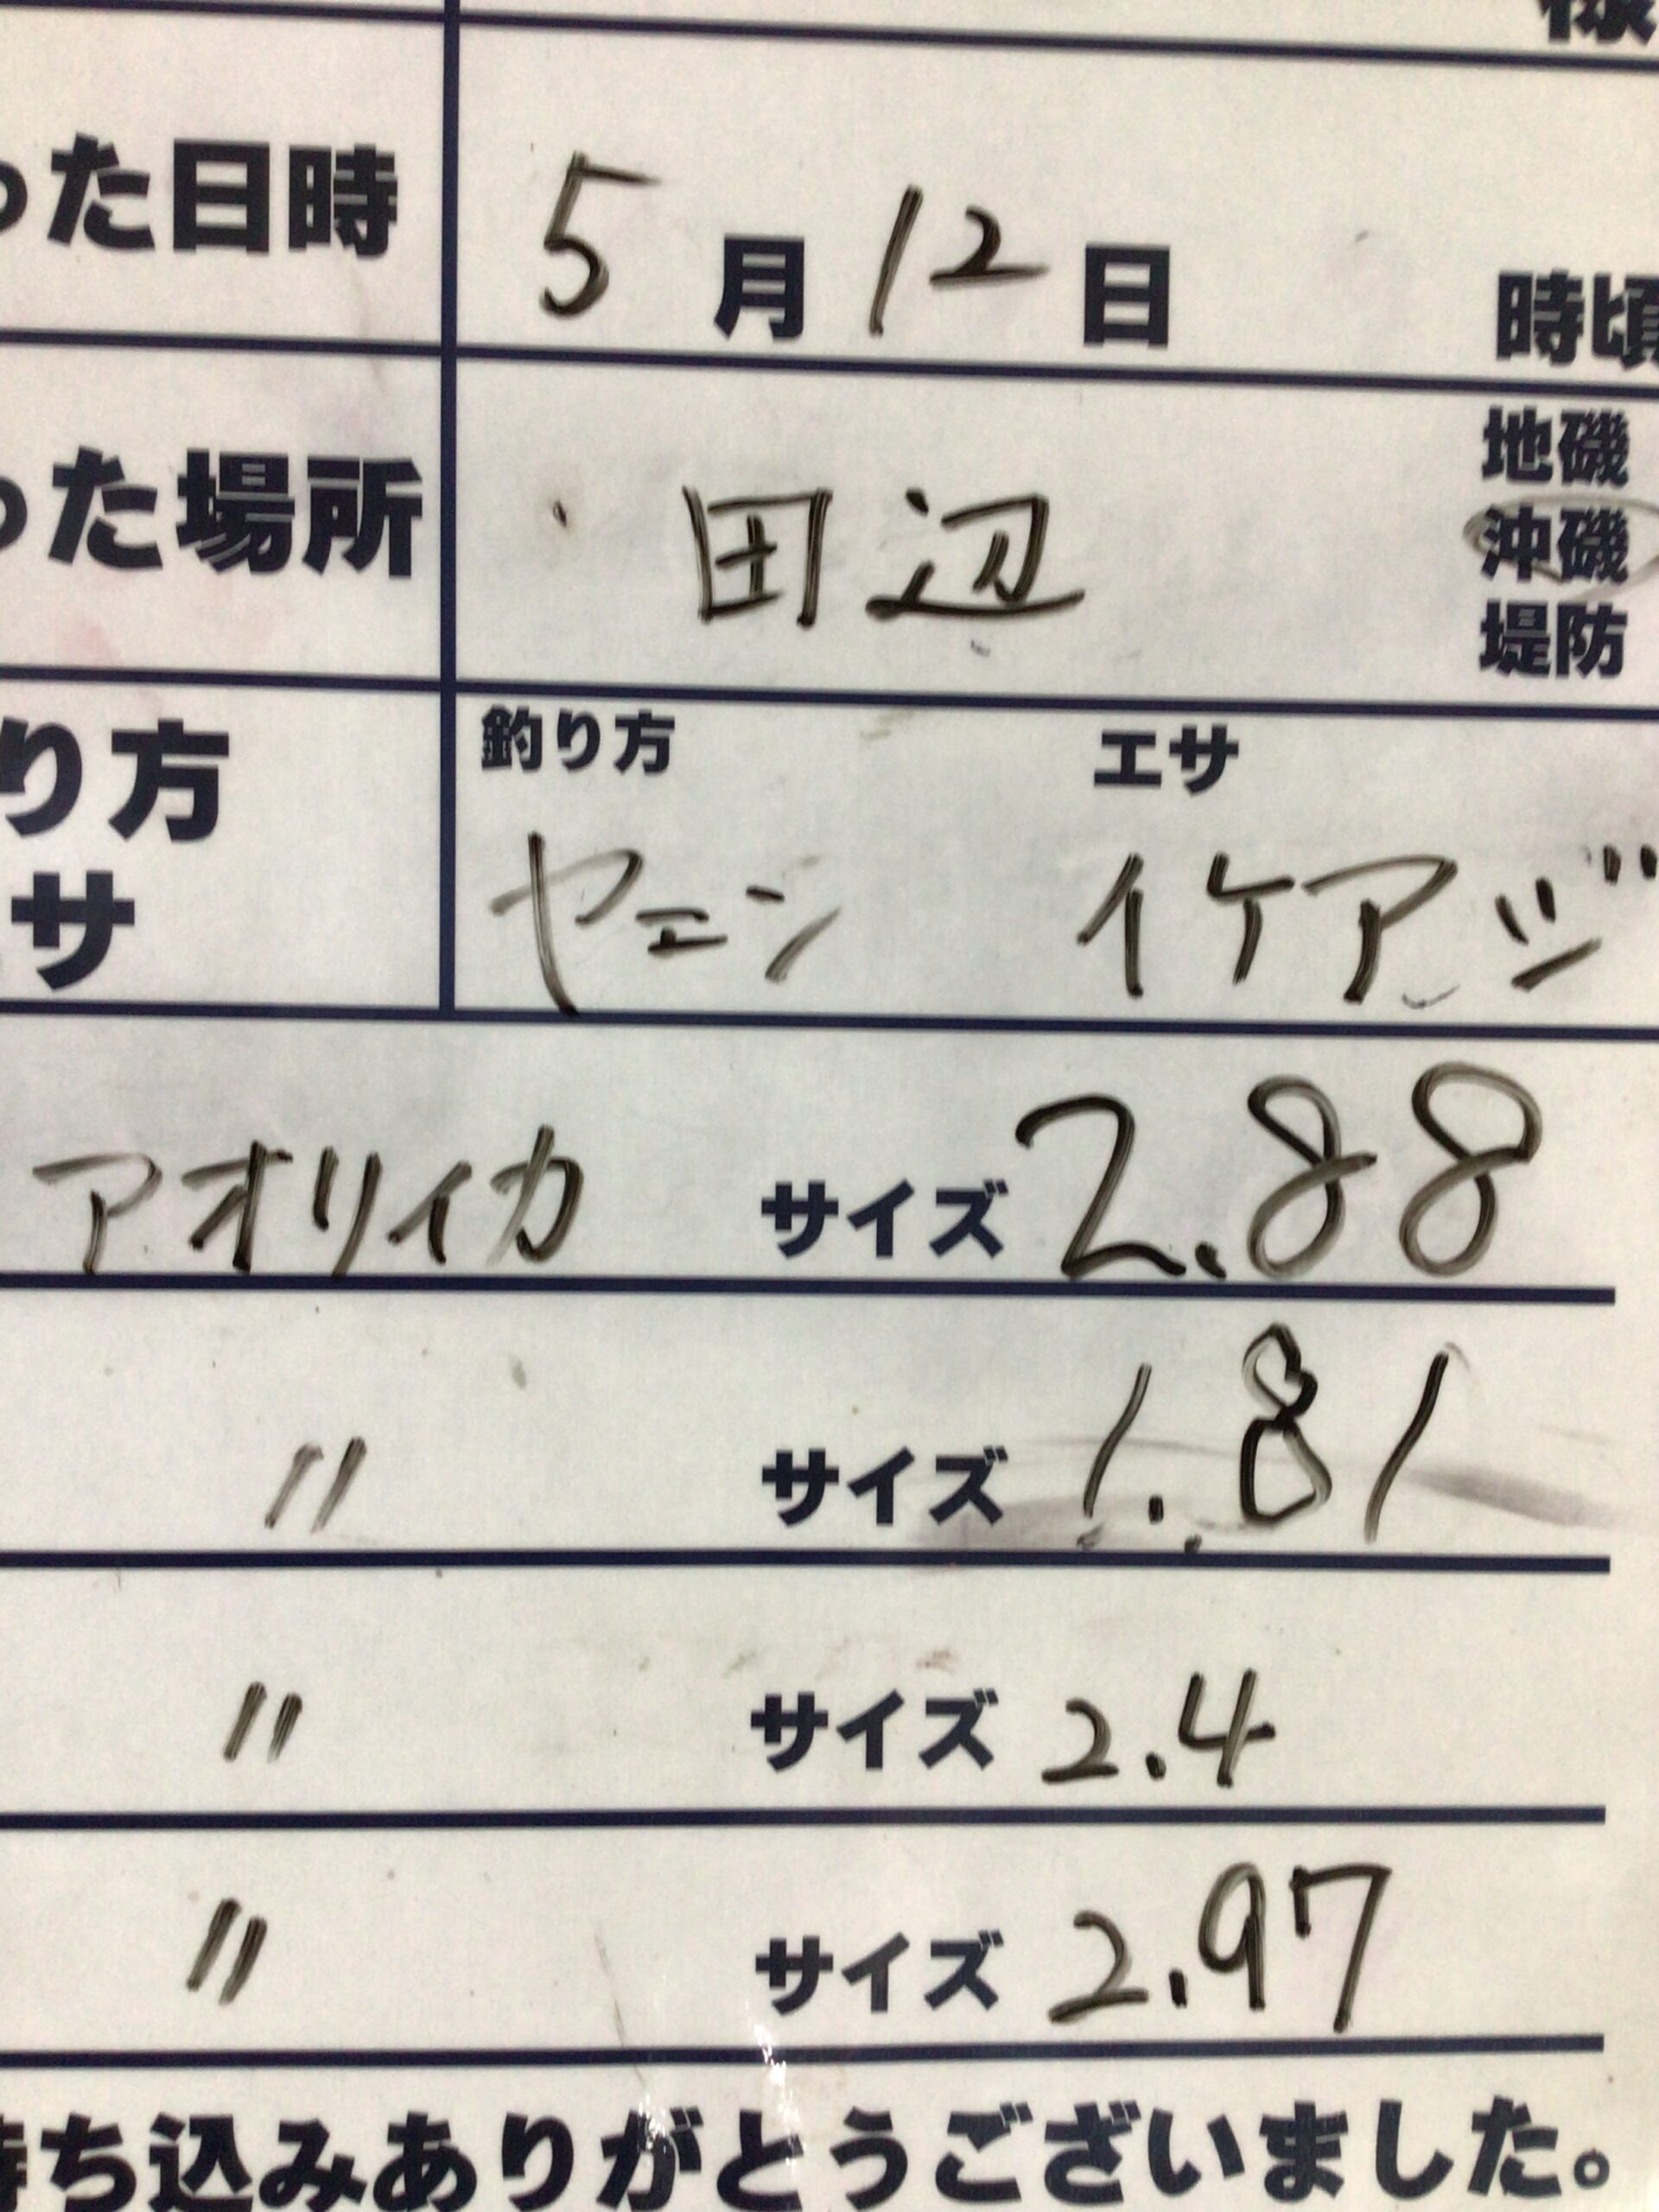 様
った日時 5月12日 時頃
地磯
った場所 田辺 沖磯
堤防
り方 釣り方 エサ
サ ヤエン イケアジ
アオリイカ サイズ 2.88
〃 サイズ 1.81
〃 サイズ 2.4
〃 サイズ 2.97
持ち込みありがとうございました。